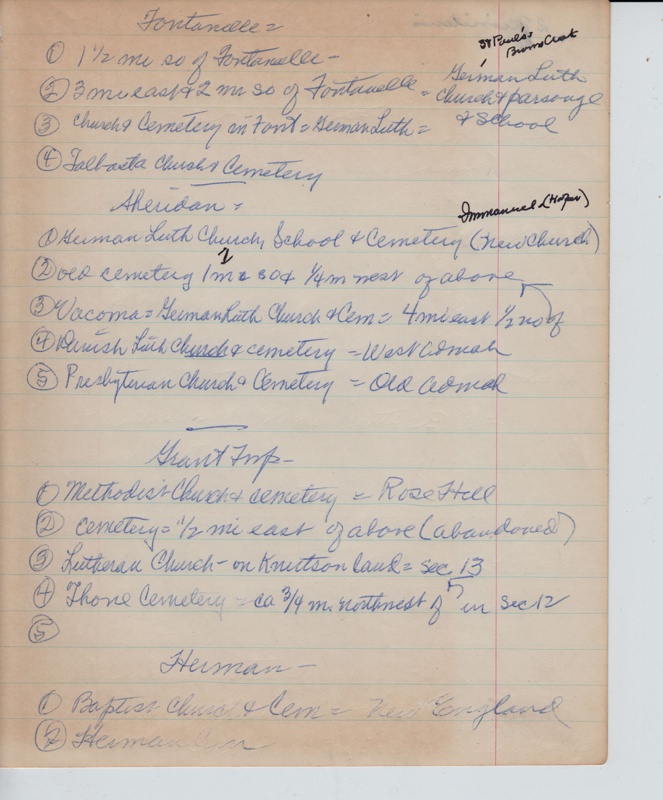 Fontanelle =
St Paul's
Browns Creek
① 1½ mi so of Fontanelle -
② 3 mi east & 2 mi so of Fontanelle = German Luth
Church & parsonge
& School
③ Church & Cemetery in Font = German Luth =
④ Talbasta Church & Cemetery
Sheridan =
Immanuel (Hoper)
① German Luth Church, School & Cemetery (New Church)
② old cemetery 1 mi so & ¼ m west of above
③ Vacoma = German Luth Church & Cem = 4 mi east ½ no of
④ Danish Luth Church & cemetery = West Admah
⑤ Presbyterian Church & Cemetery = Old Admah
Grant Twp -
① Methodist Church & cemetery = Rose Hill
② cemetery = ½ mi east of above (abandoned)
③ Lutheran Church - on Knutson land = sec 13
④ Thone Cemetery = ca ¾ m. northwest of in sec 12
⑤
Herman -
① Baptist Church & Cem = New England
② Herman Cem